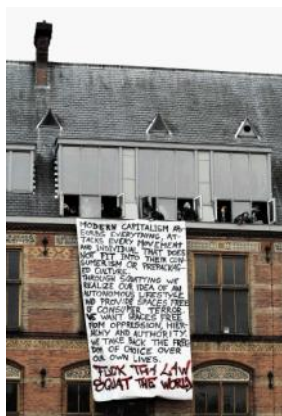 MODERN CAPITALISM AB
SORBS EVERYTHING, AT-
TACKS EVERY MOVEMENT
AND INDIVIDUAL THAT DOES
NOT FIT INTO THEIR CON
SUMERISM OR PREPACKAG-
ED CULTURE.
THROUGH SQUATTING WE
REALIZE OUR IDEA OF AN
AUTONOMOUS LIFESTYLE
AND PROVIDE SPACES FREE
OF CONSUMER TERROR.
WE WANT SPACES FREE
FROM OPPRESSION, HIER-
RCHY AND AUTHORITY.
WE TAKE BACK THE FREE
DOM OF CHOICE OVER
OUR OWN LIVES.
FUCK THE LAW
SQUAT THE WORLD